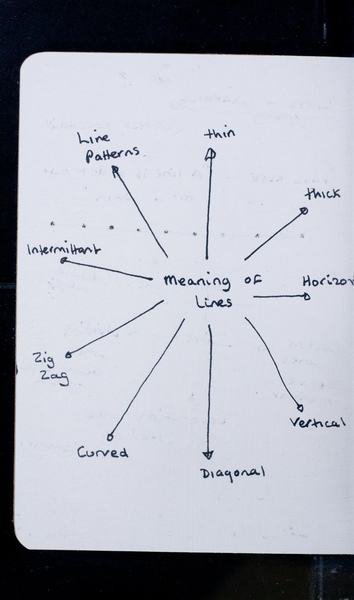 Line
Patterns.
thin
thick
Intermittant
Meaning of
Lines
Horizon
Zig
Zag
Vertical
Curved
Diagonal